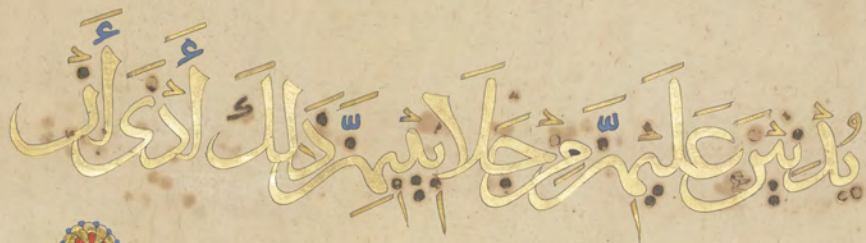 يُدْنِينَ عَلَيْهِنَّ مِنْ جَلَابِيبِهِنَّ ذَلِكَ أَدْنَى أَنْ